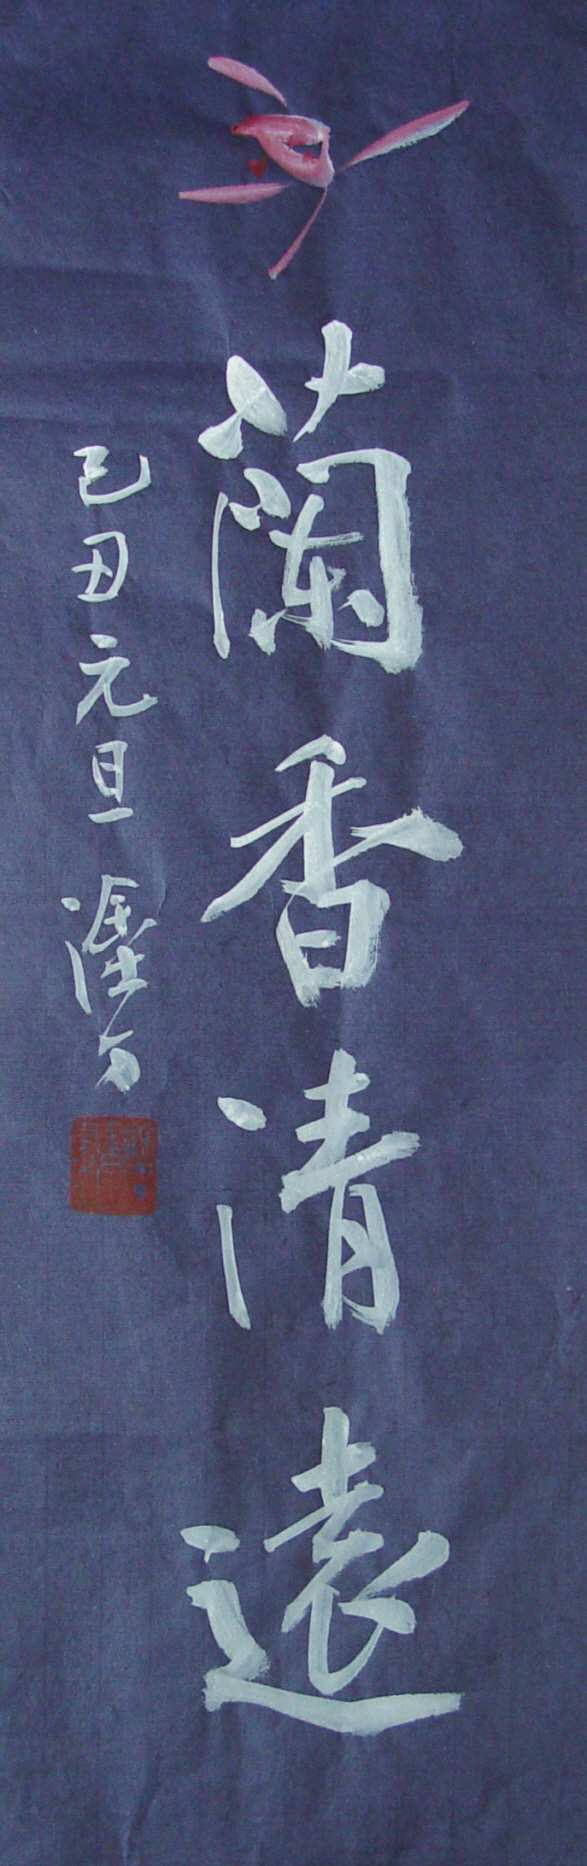 蘭香清遠
己丑元旦